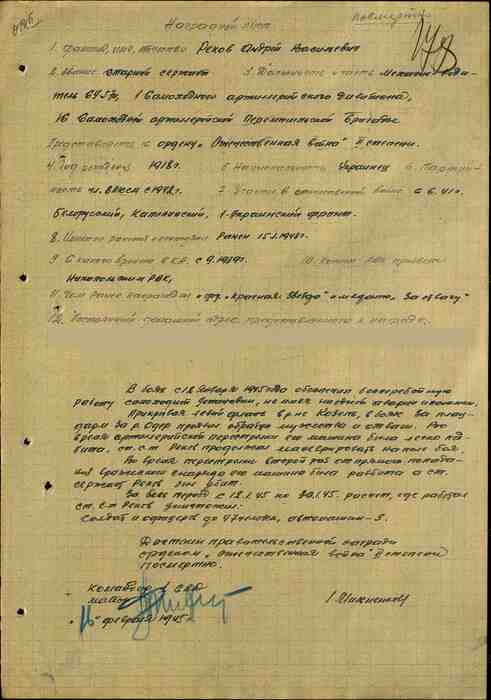 Посмертно
Наградной лист
178
1. Фамил, имя, отчество Реков Андрей Васильевич
2. Звание старший сержант 3. Должность и часть Механик води-
тель СУ57, 1 Самоходного артиллерийского дивизиона,
16 Самоходной артиллерийской Перемышльской бригады
Представляется к ордену „Отечественная война" II степени.
4. Год рождения 1918 г. 5. Национальность Украинец 6. Партий-
ность чл. ВЛКСМ с 7. Участие в отечественной войне с 6.41 г.
Белорусский, Калининский, 1-Украинский фронт.
8. Имеет ли ранения Ранен
9. С какого времени в К.А. с 9.1939 г. 10. Каким РВК призван
РВК,
11. Чем ранее награжден орд. „Красная Звезда" и медаль „За отвагу"
12. Постоянный домашний адрес представленного к награде.
В боях с 12 января 1945 года обеспечил бесперебойную
работу самоходной установки, не имея ни одной аварии и поломки.
Прикрывая левый фланг в р-не Козель, в боях за плац-
дарм за р. Одер проявил образцы мужества и отваги. Во
время артиллерийской перестрелки его машина была легко под-
бита, ст. с-т Реков продолжал маневрировать на поле боя.
Во время перестрелки второй раз от прямого попада-
ния вражеского снаряда его машина была разбита а ст.
сержант Реков был убит.
За весь период с 12.1.45 по 30.1.45 расчет, где работал
ст. с-т Реков уничтожил:
Солдат и офицеров до 47 человек, автомашин - 3.
Достоин правительственной награды
орденом „Отечественная война" II степени
посмертно.
Командир 1 САД
майор
16 февраля 1945